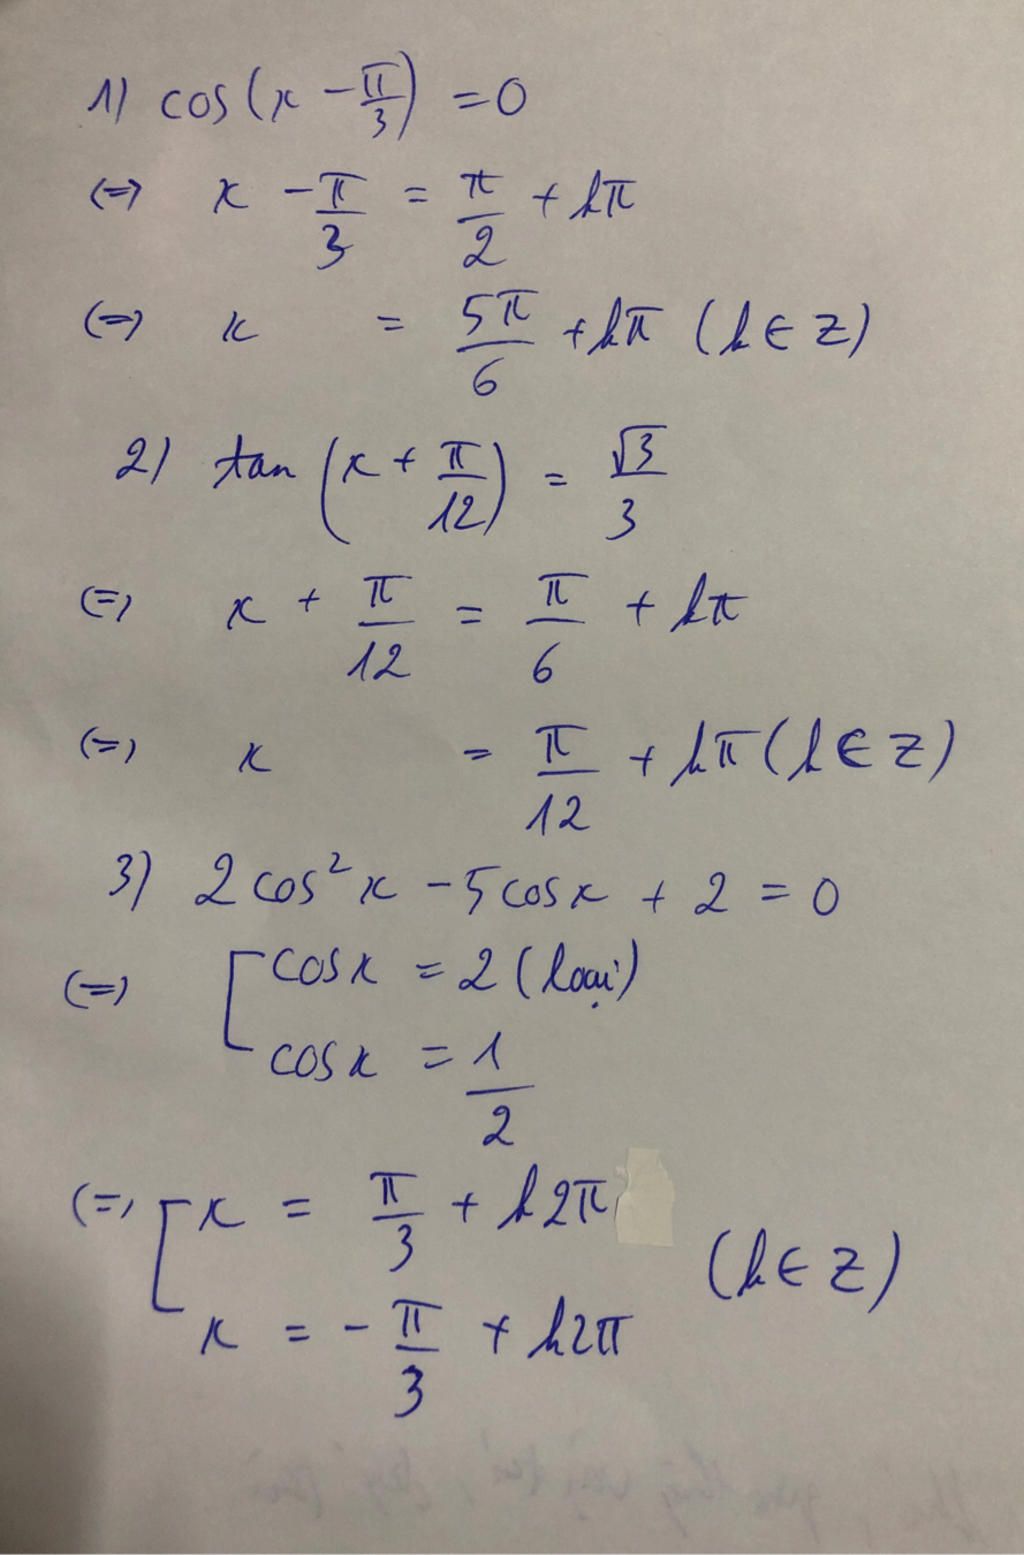 1) cos(x - π/3) = 0
(=) x - π/3 = π/2 + kπ
(=) x = 5π/6 + kπ (k ∈ Z)
2) tan (x + π/12) = √3/3
(=) x + π/12 = π/6 + kπ
(=) x = π/12 + kπ (k ∈ Z)
3) 2 cos² x - 5 cos x + 2 = 0
(=) [ cos x = 2 (loại)
cos x = 1/2
(=) [ x = π/3 + k2π
(k ∈ Z)
x = - π/3 + k2π